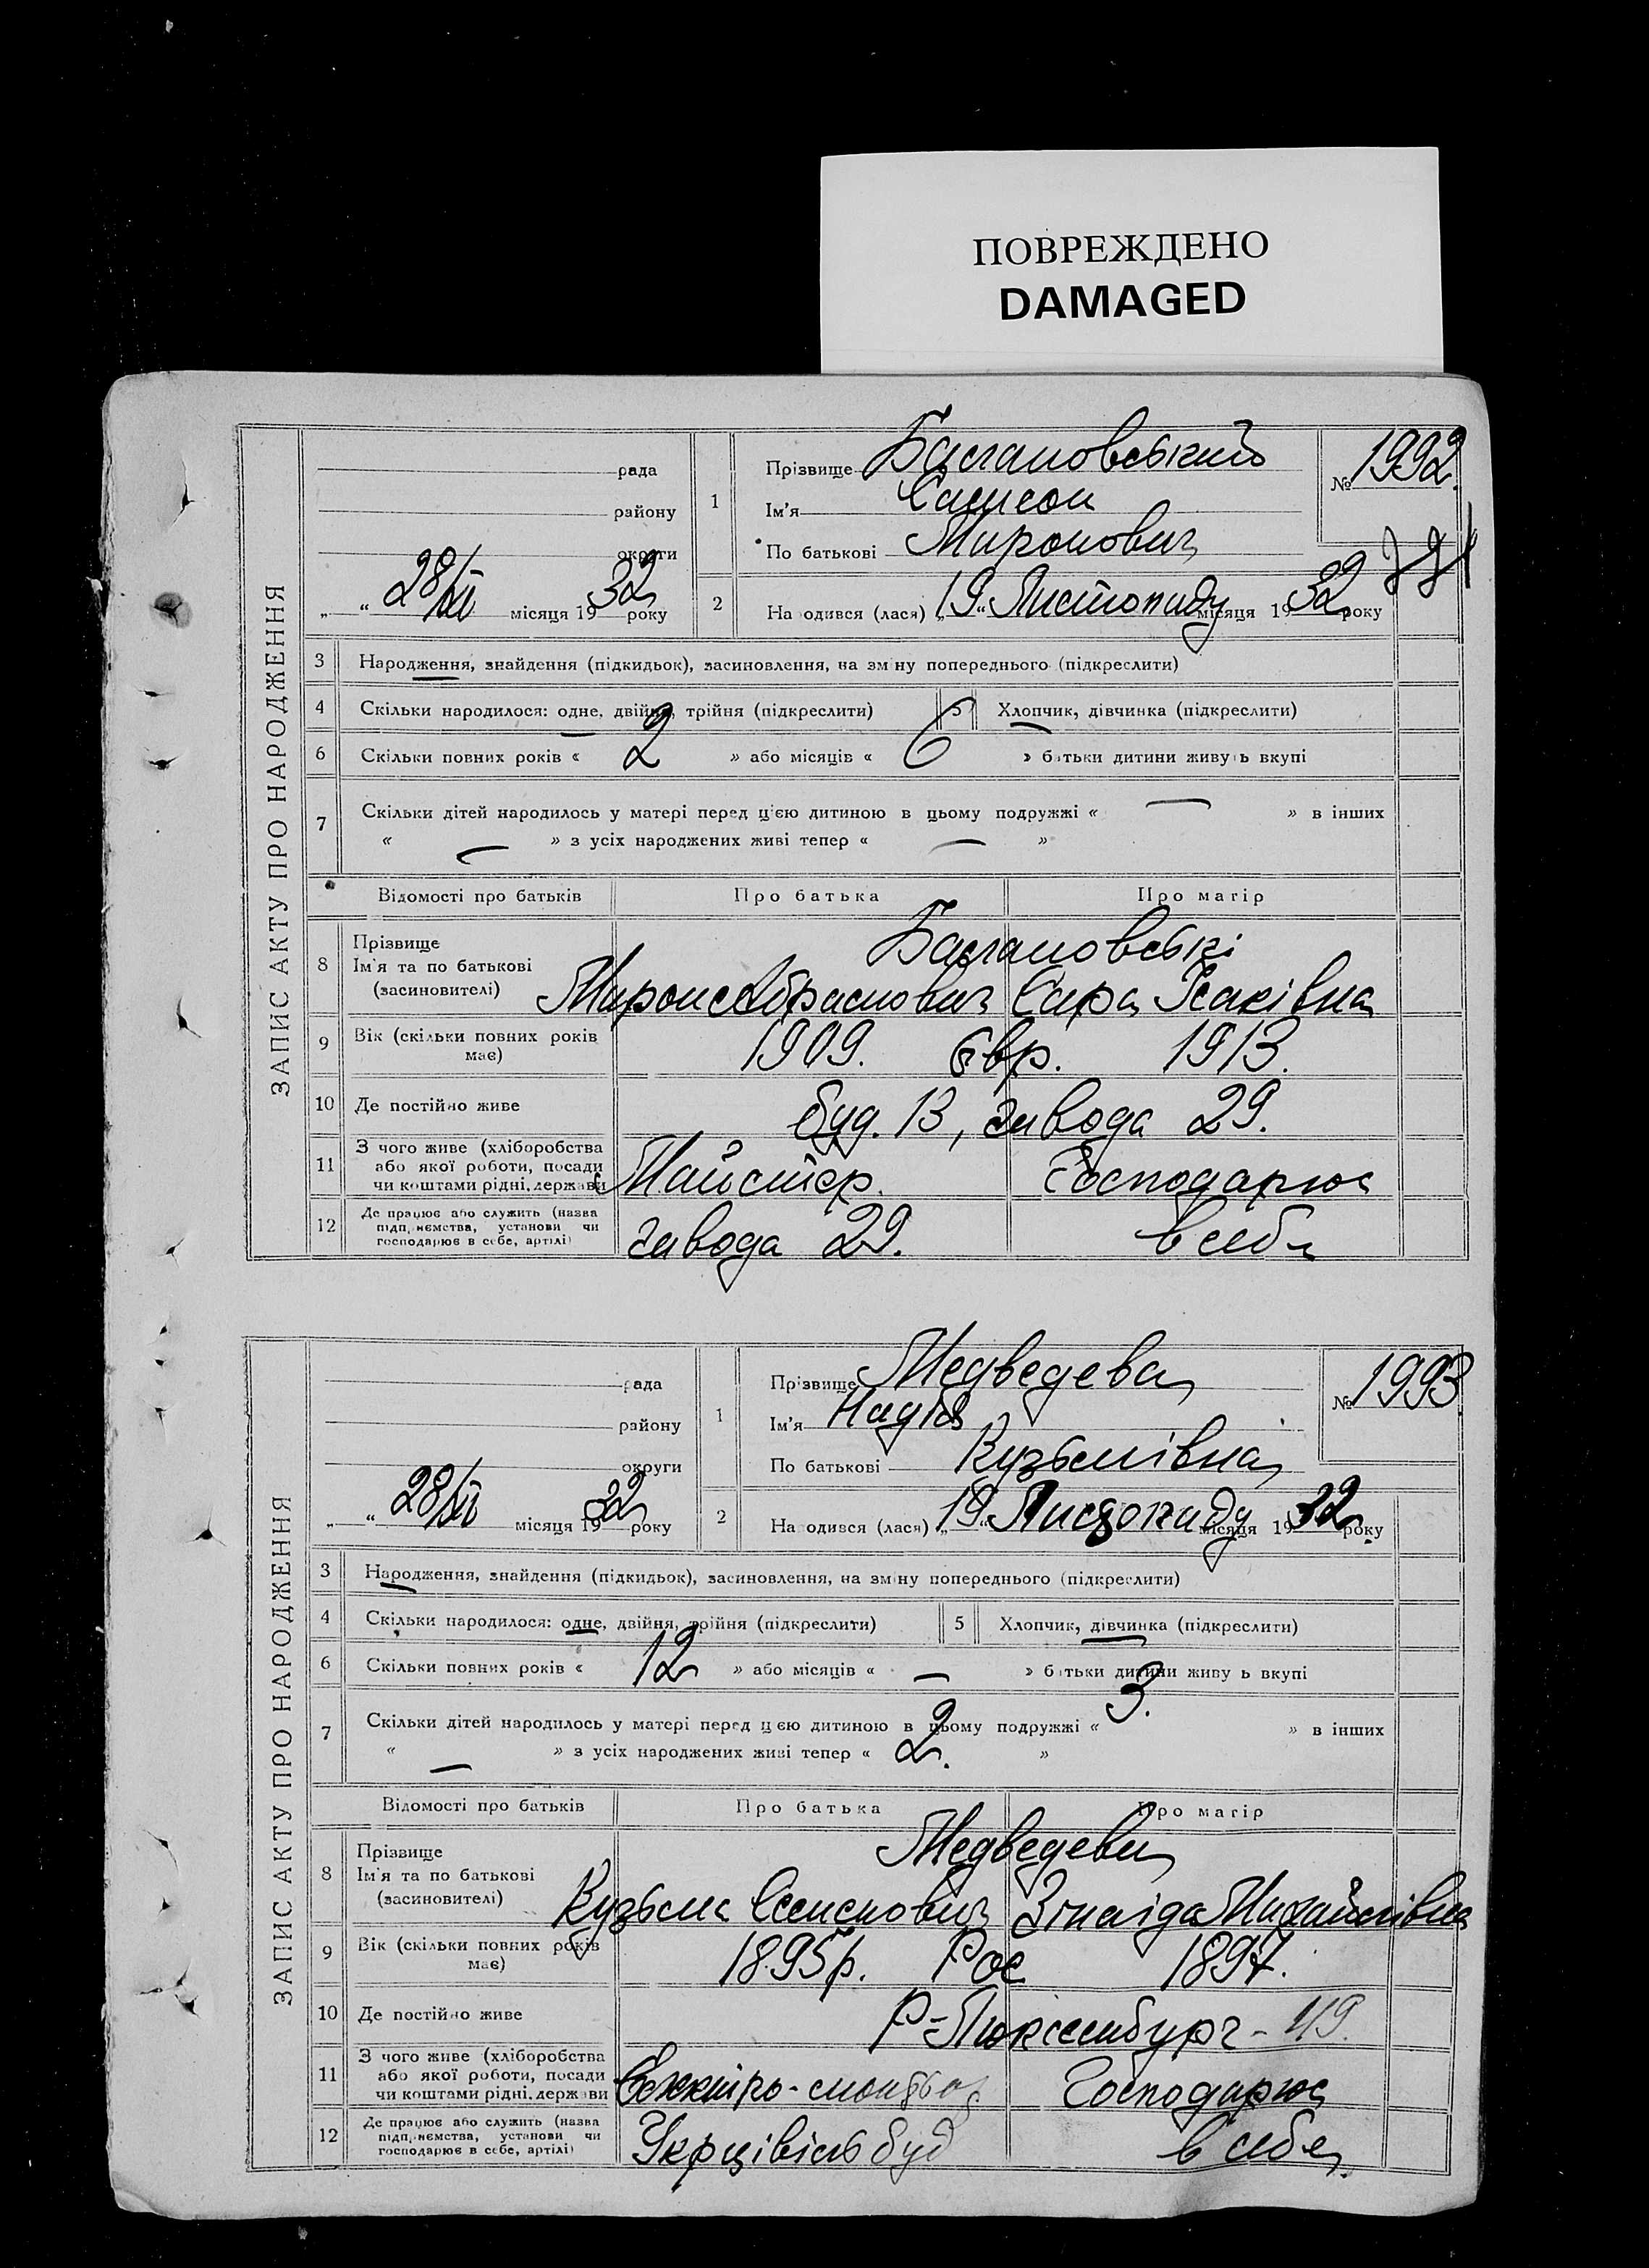 ПОВРЕЖДЕНО
DAMAGED
ЗАПИС АКТУ ПРО НАРОДЖЕННЯ
рада
району
округи
„ “ 28/XI місяця 1932 року
1
Прізвище
Ім'я Самсон
По батькові Миронович
№ 1992.
2
На одився (лася) „19“ Листопаду місяця 1932 року
3 Народження, знайдення (підкидьок), засиновлення, на зміну попереднього (підкреслити)
4 Скільки народилося: одне, двійня, трійня (підкреслити) 5 Хлопчик, дівчинка (підкреслити)
6 Скільки повних років « 2 » або місяців « 6 » батьки дитини живуть вкупі
7 Скільки дітей народилось у матері перед цією дитиною в цьому подружжі « — » в інших
« — » з усіх народжених живі тепер « — »
Відомості про батьків Про батька Про матір
8 Прізвище
Ім'я та по батькові
(засиновителі)
Мирон Абрамович Сара Ісаківна
9 Вік (скільки повних років має) 1909. Євр. 1913.
10 Де постійно живе буд. 13, завода 29.
11 З чого живе (хліборобства
або якої роботи, посади
чи коштами рідні, держави
Майстер. Господарює
12 Де працює або служить (назва
підприємства, установи чи
господарює в себе, артілі)
завода 29. в себе
ЗАПИС АКТУ ПРО НАРОДЖЕННЯ
рада
району
округи
„ “ 28/XI місяця 1932 року
1
Прізвище Медведева
Ім'я Надія
По батькові Кузьмівна
№ 1993.
2
На одився (лася) „19“ Листопаду місяця 1932 року
3 Народження, знайдення (підкидьок), засиновлення, на зміну попереднього (підкреслити)
4 Скільки народилося: одне, двійня, трійня (підкреслити) 5 Хлопчик, дівчинка (підкреслити)
6 Скільки повних років « 12 » або місяців « — » батьки дитини живу ь вкупі
7 Скільки дітей народилось у матері перед цією дитиною в цьому подружжі « 3. » в інших
« — » з усіх народжених живі тепер « 2. »
Відомості про батьків Про батька Про матір
8 Прізвище
Ім'я та по батькові
(засиновителі)
Медведеви
Кузьма Семенович Зінаіда Михайлівна
9 Вік (скільки повних років має) 1895р. Рос 1897.
10 Де постійно живе Р-Люксембург - 119.
11 З чого живе (хліборобства
або якої роботи, посади
чи коштами рідні, держави
Електро-монтьор Господарює
12 Де працює або служить (назва
підприємства, установи чи
господарює в себе, артілі)
Укрцівільбуд в себе.